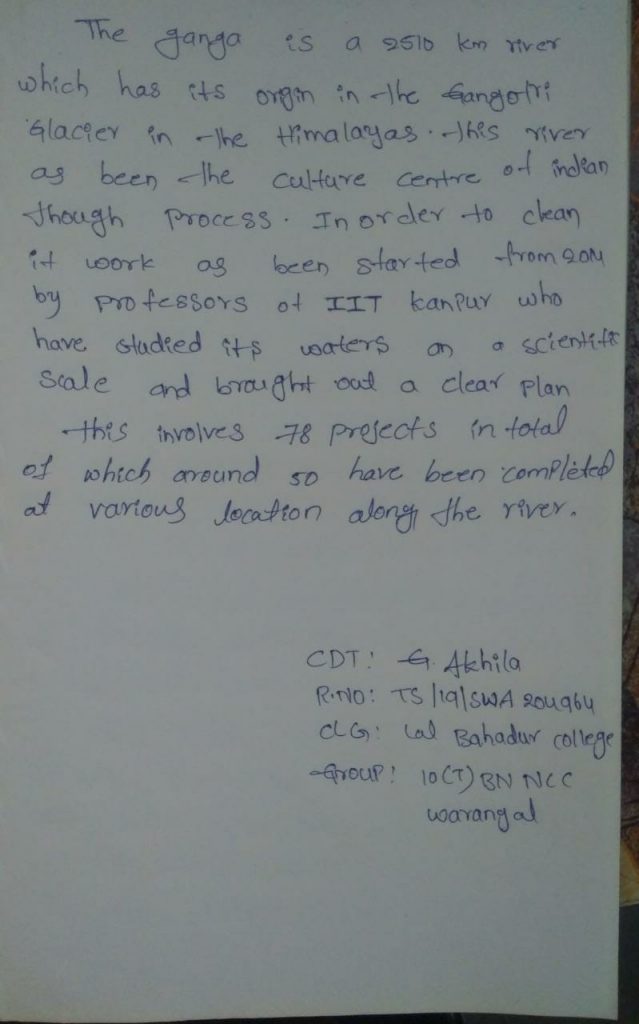 The ganga is a 2510 km river
which has its orgin in the Gangotri
Glacier in the Himalayas. This river
as been the culture centre of indian
though process. In order to clean
it work as been started from 2014
by professors of IIT kanpur who
have studied its waters on a scientific
scale and brought out a clear plan
this involves 78 projects in total
of which around 50 have been completed
at various location along the river.
CDT: G. Akhila
R.NO: TS/19/SWA 204964
CLG: Lal Bahadur college
Group: 10(T) BN NCC
warangal